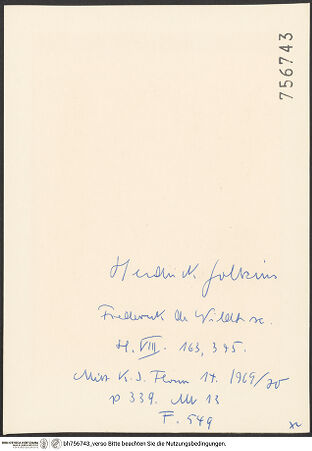 756743
Hendrick Goltzius
Frederick de Wildt sc.
H. VIII. 163, 345.
Mitt K. I. Flor. 14. 1969/70
p 339. Nr 13
F. 549
bh756743,verso Bitte beachten Sie die Nutzungsbedingungen.